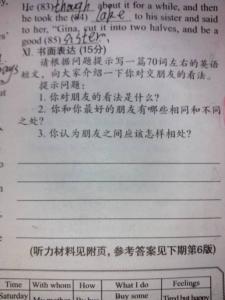 He (83) though about it for a while, and then
he took the (84) cake to his sister and said
to her, “Gina, cut it into two halves, and be a
good (85) sister.
V. 书面表达 (15分)
请根据问题提示写一篇70词左右的英语
短文, 向大家介绍一下你对交朋友的看法。
提示问题:
1. 你对朋友的看法是什么?
2. 你和你最好的朋友有哪些相同和不同
之处?
3. 你认为朋友之间应该怎样相处?
(听力材料见附页, 参考答案见下期第6版)
Time With whom How What I do Feelings
Saturday Buy some Tired but happy